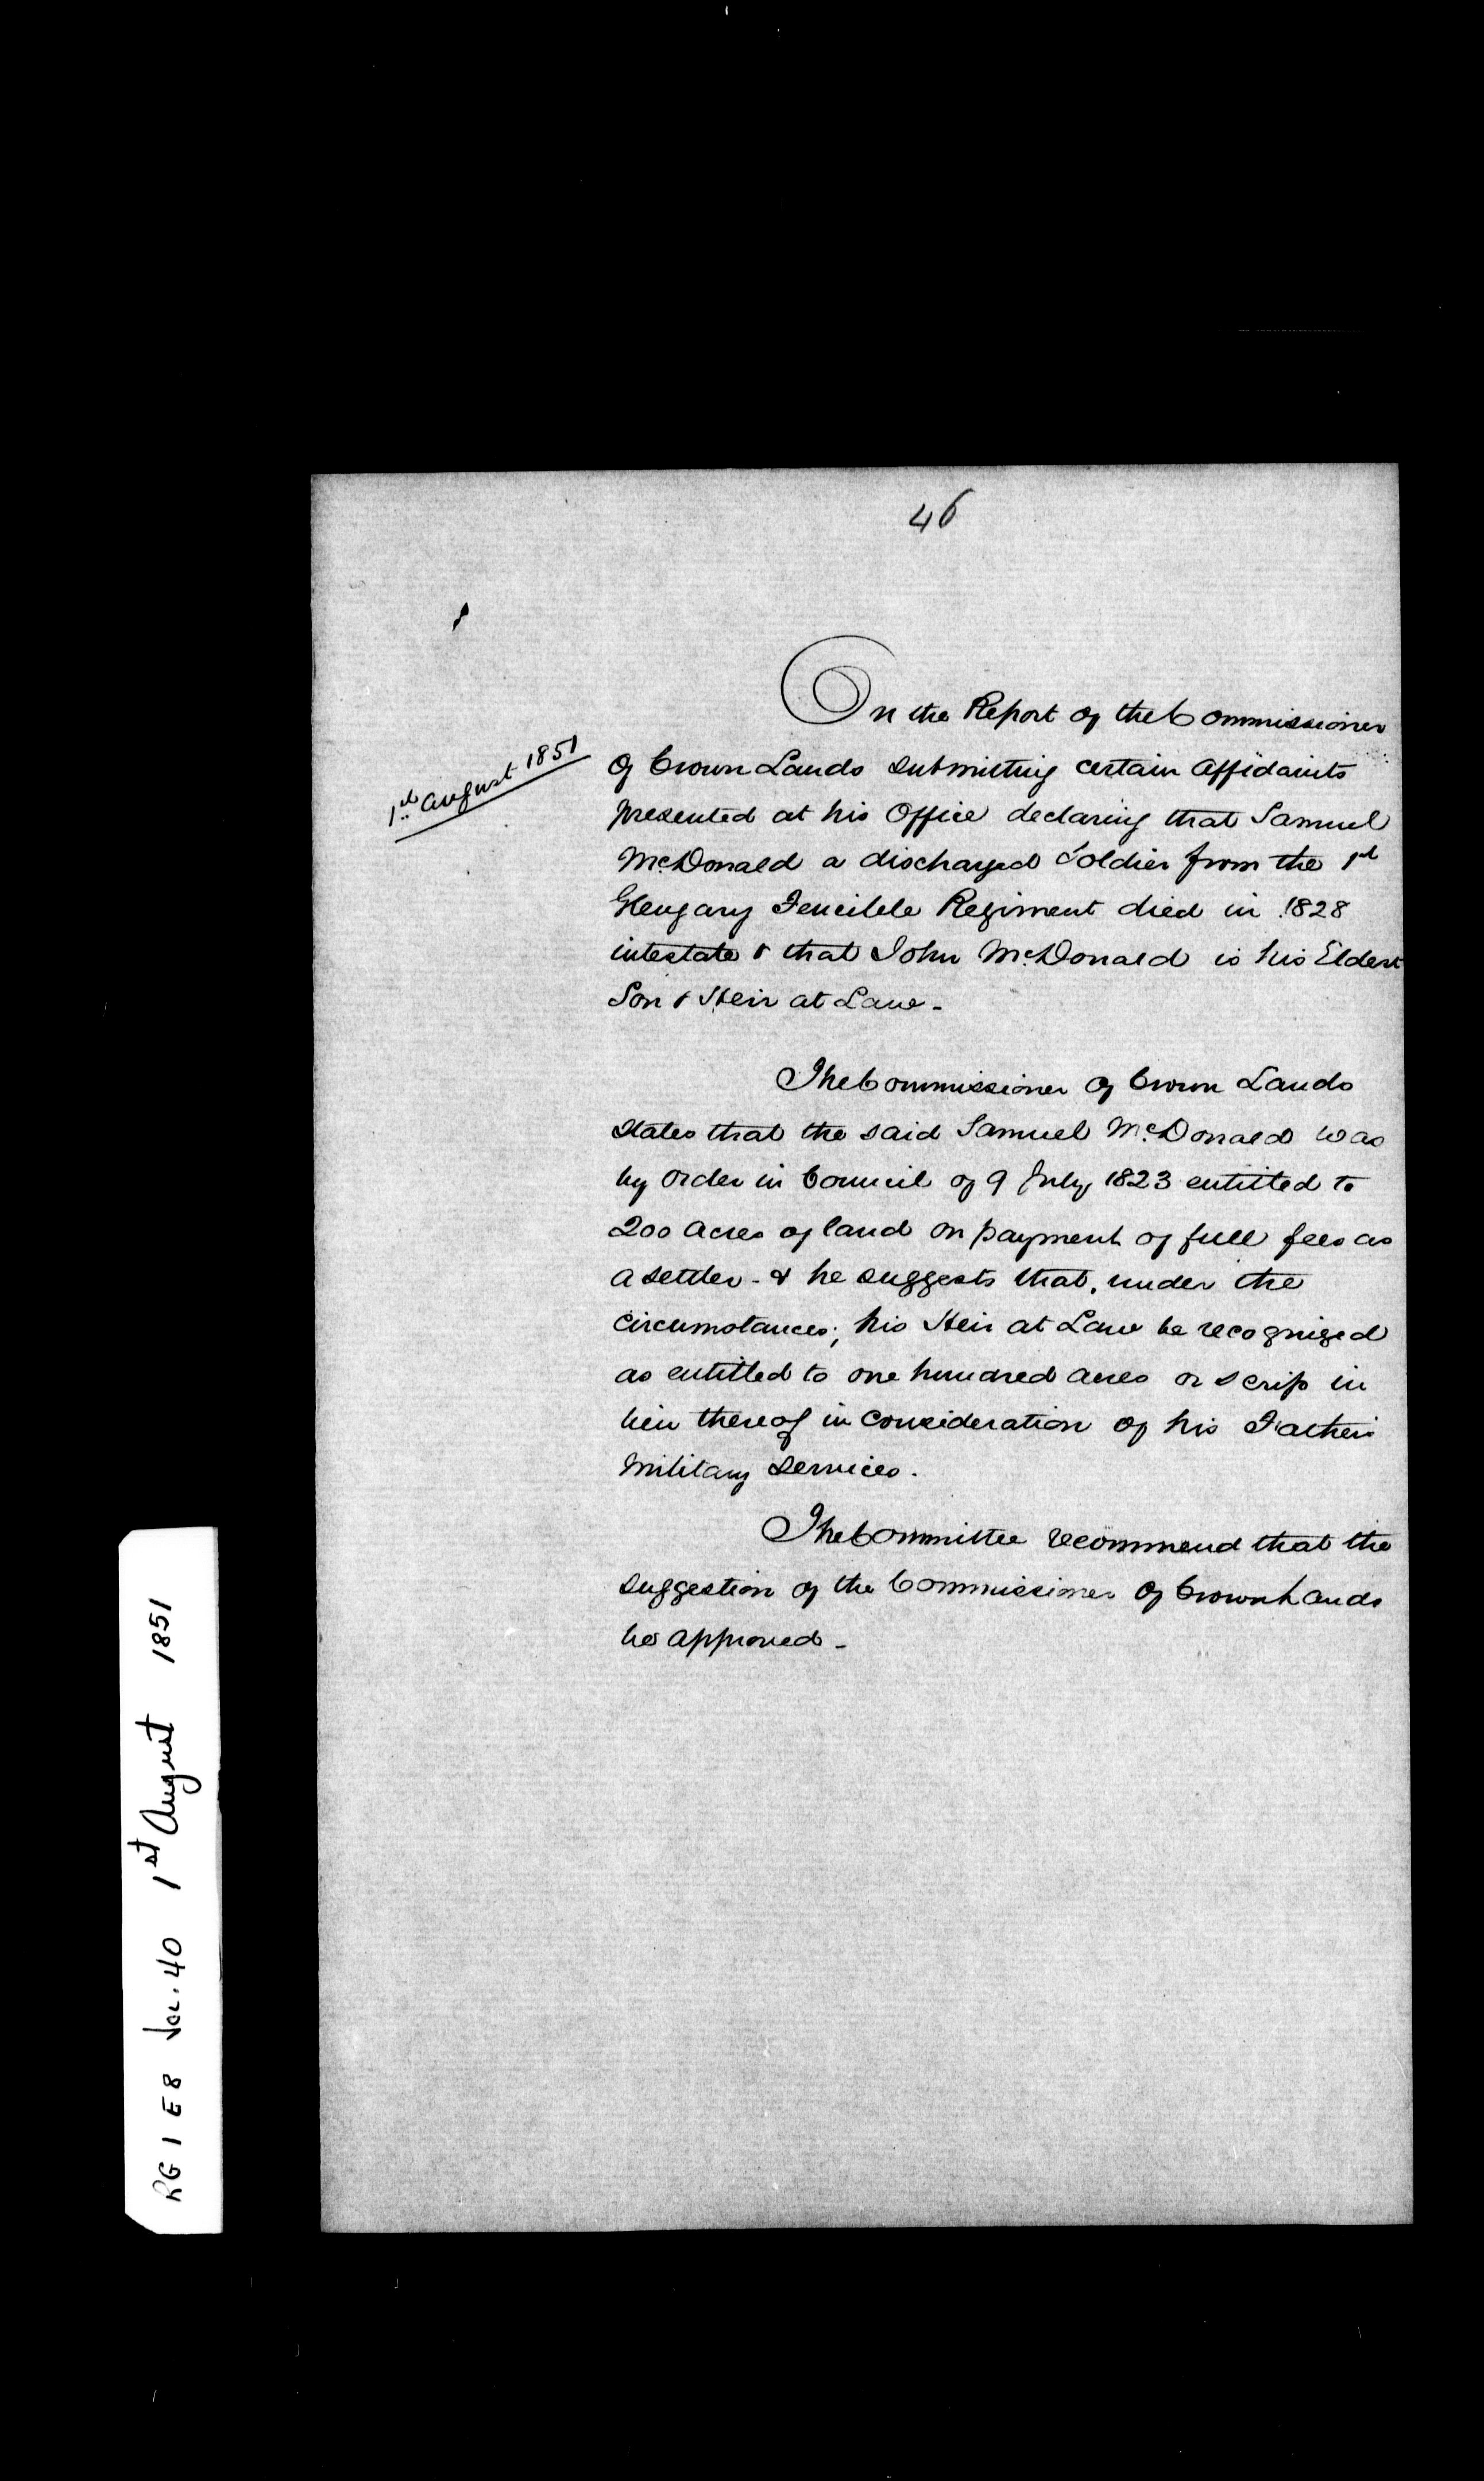 46
1st August 1851
On the Report of the Commissioner
of Crown Lands submitting certain affidavits
presented at his Office declaring that Samuel
McDonald a discharged Soldier from the 1st
Glengary Fencible Regiment died in 1828
intestate & that John McDonald is his Eldest
Son & Heir at Law -
The Commissioner of Crown Lands
states that the said Samuel McDonald was
by order in Council of 9 July 1823 entitled to
200 acres of land on payment of full fees as
a settler - & he suggests that, under the
circumstances; his Heir at Law be recognized
as entitled to one hundred acres or scrip in
lieu thereof in consideration of his Father's
Military Services.
The Committee recommend that the
suggestion of the Commissioner of Crown Lands
be approved -
RG 1 E8 Vol. 40 1st August 1851